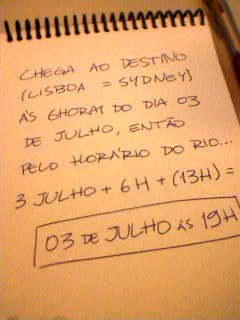 CHEGA AO DESTINO
(LISBOA = SYDNEY)
ÀS 6HORAS DO DIA 03
DE JULHO, ENTÃO
PELO HORÁRIO DO RIO...
3 JULHO + 6H + (13H) =
03 DE JULHO ÀS 19H